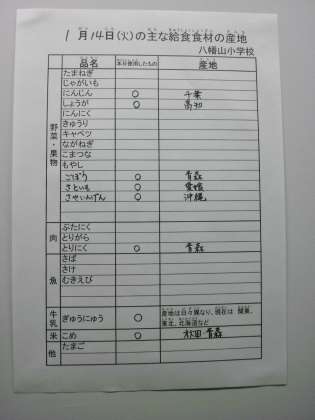 1月14日(火)の主な給食食材の産地
八幡山小学校
品名 本日使用したもの 産地
野菜・果物
たまねぎ
じゃがいも
にんじん ○ 千葉
しょうが ○ 高知
にんにく
きゅうり
キャベツ
ながねぎ
こまつな
もやし
ごぼう ○ 青森
さといも ○ 愛媛
さやいんげん ○ 沖縄
肉
ぶたにく
とりがら
とりにく ○ 青森
魚
さば
さけ
むきえび
牛乳 ぎゅうにゅう ○ 産地は日々異なり、現在は 関東、
東北、北海道など
米 こめ ○ 秋田 青森
他 たまご